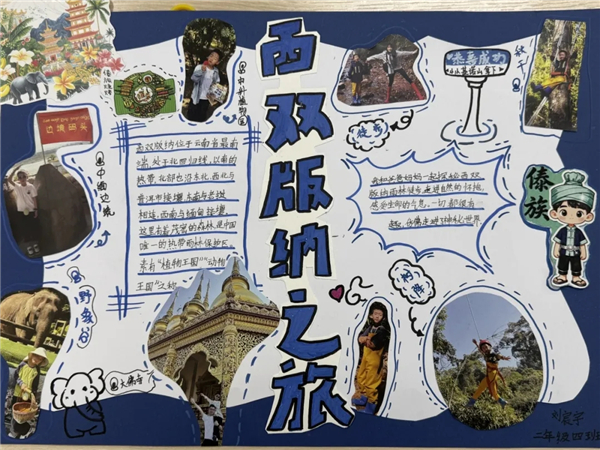 西双版纳之旅
中科植物园
边境码头
中国边境
西双版纳位于云南省最南
端,处于北回归线,以南的
热带,北部
东北、西北与
普洱市接壤,东南与老挝
相连,西南与缅甸接壤,
这里有着茂密的森林,是中国
唯一的热带雨林保护区
素有“植物王国”“动物
王国”之称
野象谷
大佛寺
徒步
秋千
我和爸爸妈妈一起探秘西双
版纳雨林徒步走进自然的怀抱,
感受生命的气息,一切都很有
趣,仿佛来到神秘世界
傣族
二年级四班